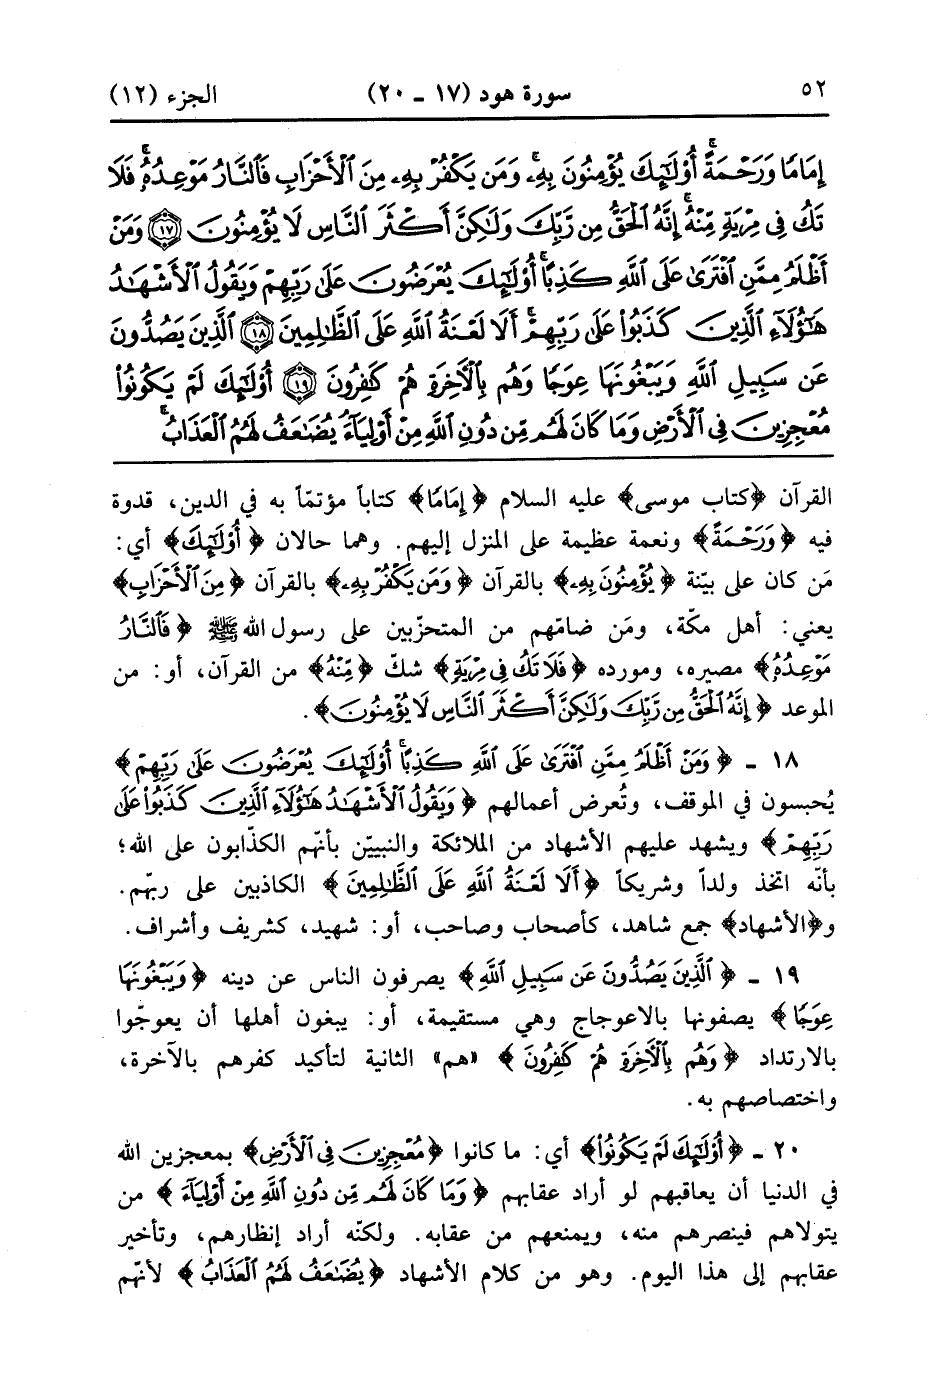 ٥٢ سورة هود (١٧ ـ ٢٠) الجزء (١٢)
إِمَامًا وَرَحْمَةً ۚ أُوْلَٰٓئِكَ يُؤْمِنُونَ بِهِۦ ۚ وَمَن يَكْفُرْ بِهِۦ مِنَ ٱلْأَحْزَابِ فَٱلنَّارُ مَوْعِدُهُۥ ۚ فَلَا
تَكُ فِى مِرْيَةٍ مِّنْهُ ۚ إِنَّهُ ٱلْحَقُّ مِن رَّبِّكَ وَلَٰكِنَّ أَكْثَرَ ٱلنَّاسِ لَا يُؤْمِنُونَ ١٧ وَمَنْ
أَظْلَمُ مِمَّنِ ٱفْتَرَىٰ عَلَى ٱللَّهِ كَذِبًا ۚ أُوْلَٰٓئِكَ يُعْرَضُونَ عَلَىٰ رَبِّهِمْ وَيَقُولُ ٱلْأَشْهَٰدُ
هَٰٓؤُلَآءِ ٱلَّذِينَ كَذَبُوا۟ عَلَىٰ رَبِّهِمْ ۚ أَلَا لَعْنَةُ ٱللَّهِ عَلَى ٱلظَّٰلِمِينَ ١٨ ٱلَّذِينَ يَصُدُّونَ
عَن سَبِيلِ ٱللَّهِ وَيَبْغُونَهَا عِوَجًا وَهُم بِٱلْآخِرَةِ هُمْ كَٰفِرُونَ ١٩ أُوْلَٰٓئِكَ لَمْ يَكُونُوا۟
مُعْجِزِينَ فِى ٱلْأَرْضِ وَمَا كَانَ لَهُم مِّن دُونِ ٱللَّهِ مِنْ أَوْلِيَآءَ ۘ يُضَٰعَفُ لَهُمُ ٱلْعَذَابُ ۚ
القرآن ﴿كتاب موسى﴾ عليه السلام ﴿إِمَامًا﴾ كتاباً مؤتمّاً به في الدين، قدوة
فيه ﴿وَرَحْمَةً﴾ ونعمة عظيمة على المنزل إليهم. وهما حالان ﴿أُوْلَٰٓئِكَ﴾ أي:
مَن كان على بيّنة ﴿يُؤْمِنُونَ بِهِۦ﴾ بالقرآن ﴿وَمَن يَكْفُرْ بِهِۦ﴾ بالقرآن ﴿مِنَ ٱلْأَحْزَابِ﴾
يعني: أهل مكّة، ومَن ضامّهم من المتحزّبين على رسول الله ﷺ ﴿فَٱلنَّارُ
مَوْعِدُهُۥ﴾ مصيره، ومورده ﴿فَلَا تَكُ فِى مِرْيَةٍ﴾ شكّ ﴿مِّنْهُ﴾ من القرآن، أو: من
الموعد ﴿إِنَّهُ ٱلْحَقُّ مِن رَّبِّكَ وَلَٰكِنَّ أَكْثَرَ ٱلنَّاسِ لَا يُؤْمِنُونَ﴾.
١٨ ـ ﴿وَمَنْ أَظْلَمُ مِمَّنِ ٱفْتَرَىٰ عَلَى ٱللَّهِ كَذِبًا ۚ أُوْلَٰٓئِكَ يُعْرَضُونَ عَلَىٰ رَبِّهِمْ﴾
يُحبسون في الموقف، وتُعرض أعمالهم ﴿وَيَقُولُ ٱلْأَشْهَٰدُ هَٰٓؤُلَآءِ ٱلَّذِينَ كَذَبُوا۟ عَلَىٰ
رَبِّهِمْ﴾ ويشهد عليهم الأشهاد من الملائكة والنبييّن بأنّهم الكذّابون على الله؛
بأنّه اتخذ ولداً وشريكاً ﴿أَلَا لَعْنَةُ ٱللَّهِ عَلَى ٱلظَّٰلِمِينَ﴾ الكاذبين على ربّهم.
و﴿الأشهاد﴾ جمع شاهد، كأصحاب وصاحب، أو: شهيد، كشريف وأشراف.
١٩ ـ ﴿ٱلَّذِينَ يَصُدُّونَ عَن سَبِيلِ ٱللَّهِ﴾ يصرفون الناس عن دينه ﴿وَيَبْغُونَهَا
عِوَجًا﴾ يصفونها بالاعوجاج وهي مستقيمة، أو: يبغون أهلها أن يعوجّوا
بالارتداد ﴿وَهُم بِٱلْآخِرَةِ هُمْ كَٰفِرُونَ﴾ «هم» الثانية لتأكيد كفرهم بالآخرة،
واختصاصهم به.
٢٠ ـ ﴿أُوْلَٰٓئِكَ لَمْ يَكُونُوا۟﴾ أي: ما كانوا ﴿مُعْجِزِينَ فِى ٱلْأَرْضِ﴾ بمعجزين الله
في الدنيا أن يعاقبهم لو أراد عقابهم ﴿وَمَا كَانَ لَهُم مِّن دُونِ ٱللَّهِ مِنْ أَوْلِيَآءَ﴾ من
يتولاهم فينصرهم منه، ويمنعهم من عقابه. ولكنّه أراد إنظارهم، وتأخير
عقابهم إلى هذا اليوم. وهو من كلام الأشهاد ﴿يُضَٰعَفُ لَهُمُ ٱلْعَذَابُ﴾ لأنّهم